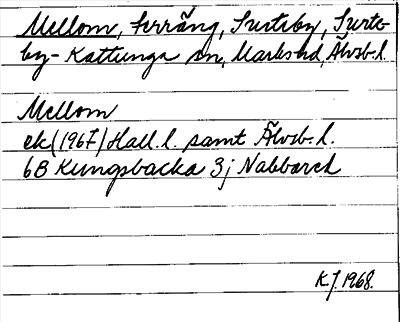 Mellom, terräng, Surteby, Surte-
by-Kattunga sn, Marks hd, Älvsb. l.
Mellom
ek (1967) Hall. l. samt Älvsb. l.
6B Kungsbacka 3j Nabbared
K.J. 1968.